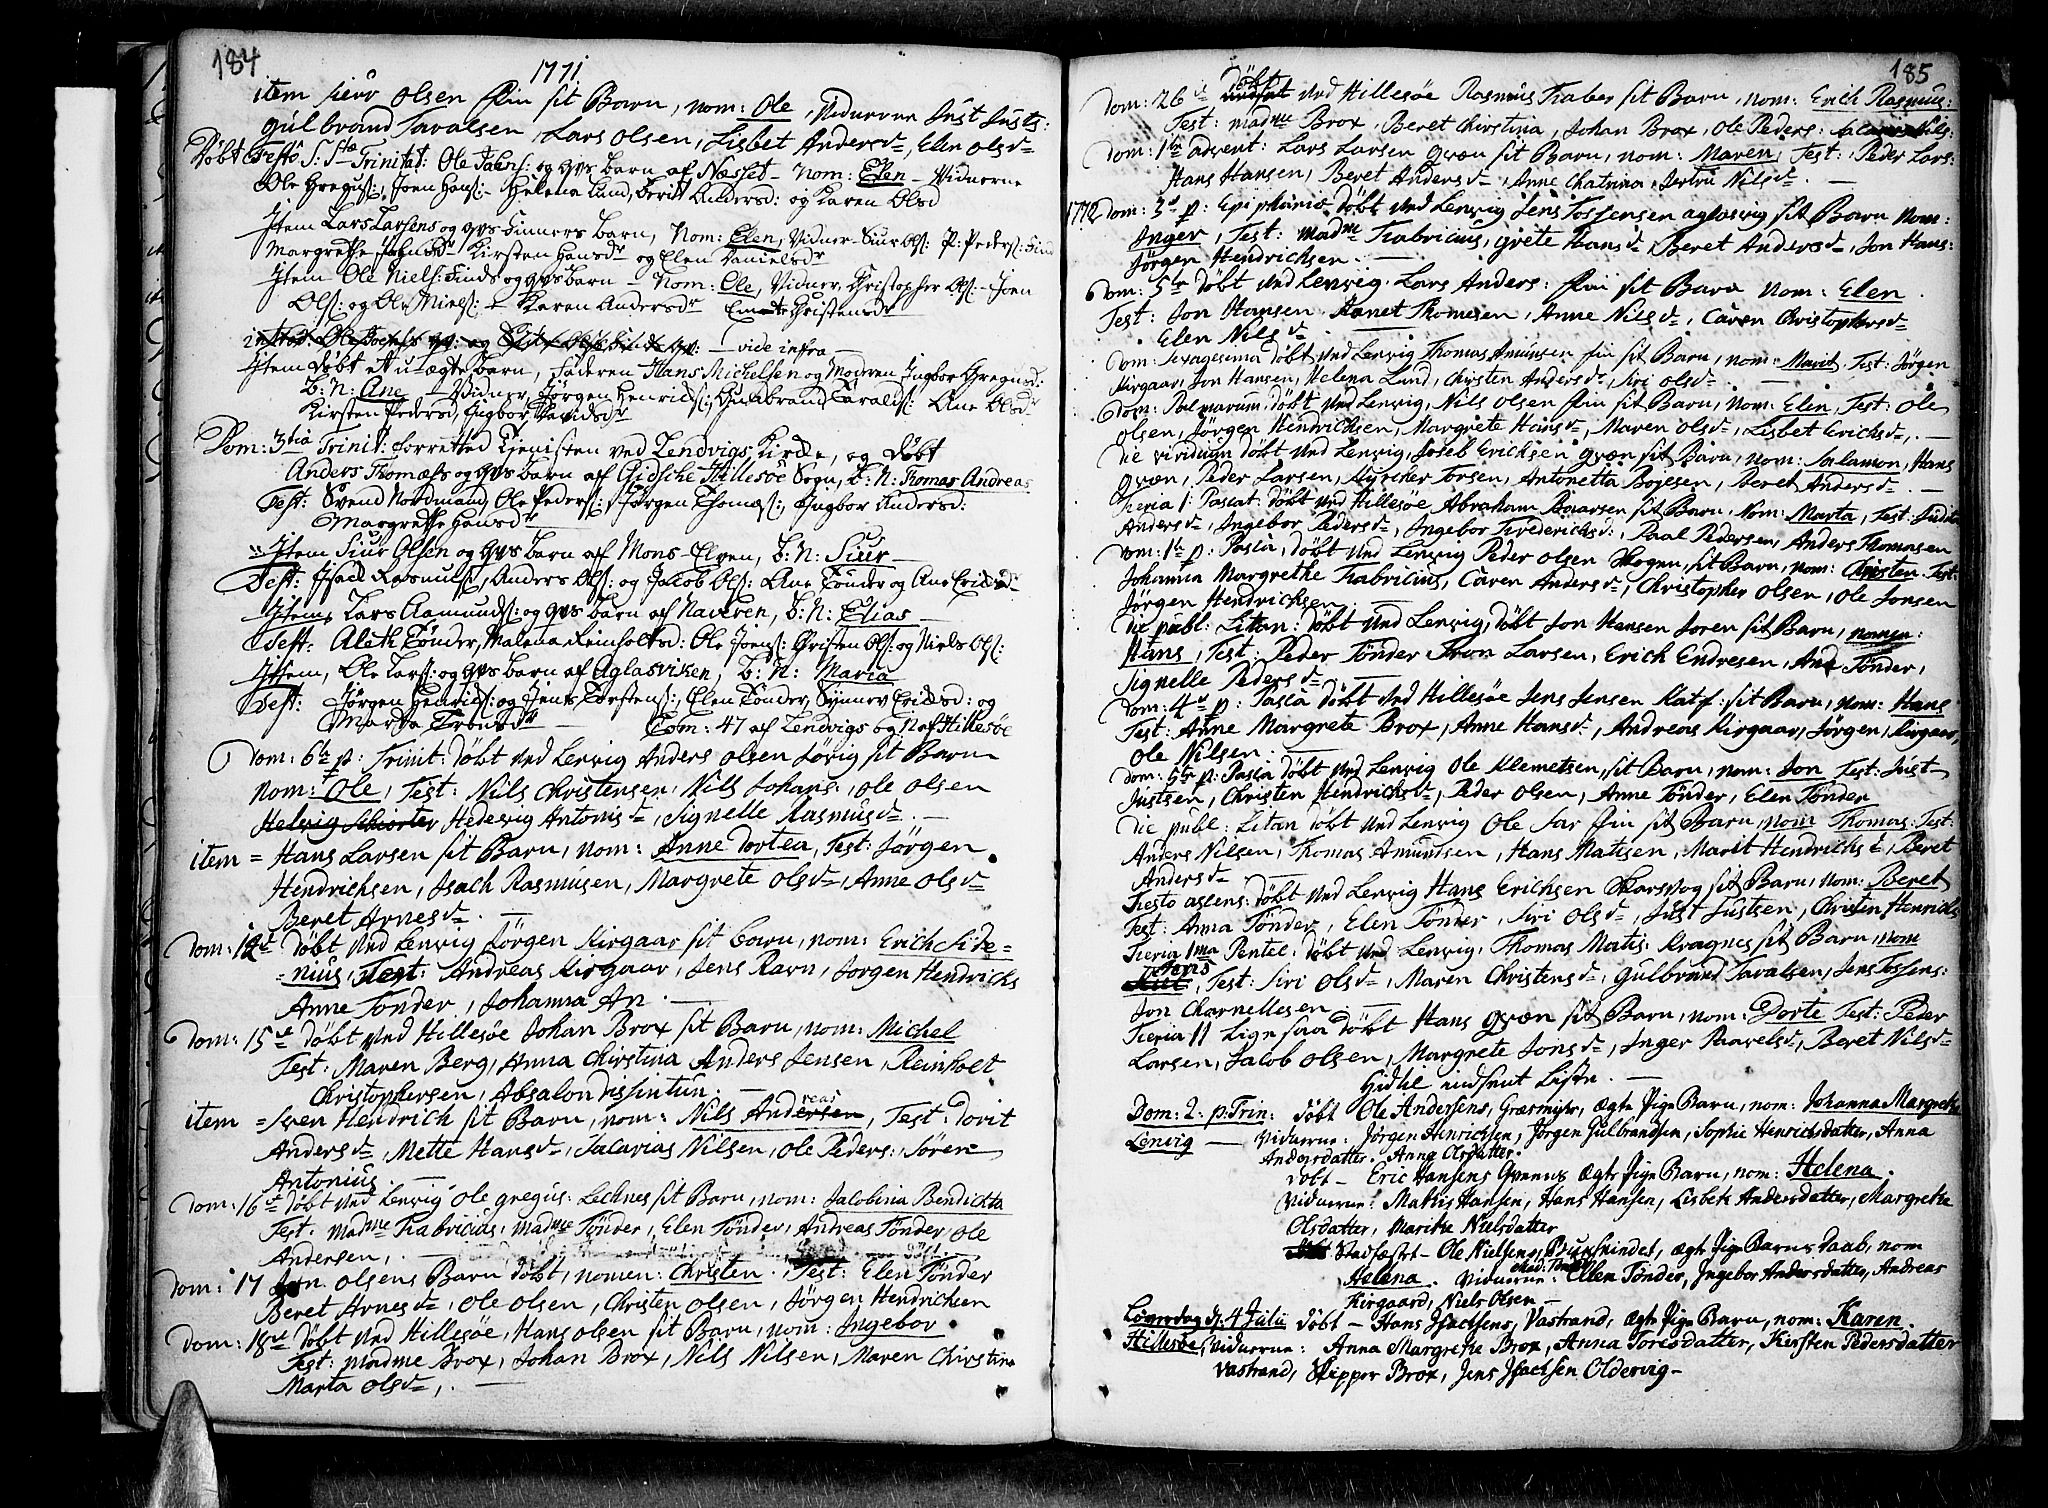 184
1771
item siur Olsen Fin sit Barn, nom: Ole, Vidnerne Just Justs:
Gulbrand Tavalsen, Lars Olsen, Lisbet Andersd, Elen Olsd
Døbt Festo S: Stæ Trinitat: Ole Jacobs: og hvs barn af Næsset - Nom: Elen - Vidnerne
Ole Gregus:, Joen Hans: - Helena Lund, Berit Andersd: og Karen Olsd
Item Lars Larsens og hvs Finners barn, Nom: Elen, Vidner - Siur Ols: P: Peders: Find
Margrethe Johnsdr Kirsten Hansdr og Elen Danielsdr
Item Ole Niels: Finds og hvs barn - Nom: Ole, Vidner, Christopher Ols: - Joen
Ols: og Ole Niels: - Karen Andersdr Christensdr
vide infra
Item Døbt et uægte barn, Faderen Hans Michelsen og Moderen Ingbor Gregusd:
B: N: Ane - Vidner, Jørgen Henrichs:, Gulbrand Taralds: Ane Olsdr
Kirsten Pedersd, Ingbor Davidsdr
Dom: 3tia Trinit: forretted Tienisten ved Lendvigs Kirke, og Døbt
Anders Thomæss og hvs barn af Gidsche Hillesøe Sogn, B: N: Thomas Andreas
Test: Svend Nordmand, Ole Peders: Jørgen Thomæs:, Ingbor Andersd:
Margrethe Hansdr
Item Siur Olsen og hvs barn af Mons-Elven, B: N: Siur
Test: Isach Rasmus:, Anders Ols: og Jacob Ols: Ane Tønder og Ane Erichsd
Item Lars Aamunds: og hvs barn af Naveren, B: N: Elias
Test: Aleth Tønder, Malena Reinholtsd: Ole Joens: Christen Ols: og Niels Ols:
Item, Ole Lars: og hvs barn af Aglasviken, B: N: Maria
Test: Jørgen Henrichs: og Jens Torstens:, Elen Tønder, Synnev Erichsd: og
Marta Tronsdr Com: 47 af Lendvigs og N af Hillesøe
Dom: 6te p: Trinit: Døbt ved Lenvig Anders Olsen Jøvig sit Barn
Nom: Ole, Test: Nils Christensen, Nils Johans:, Ole Olsen
Hedevig Antonisd, Signelle Rasmusd.
item = Hans Larsen sit Barn, nom: Anne Dortea, Test: Jørgen
Hendrichsen, Isach Rasmusen, Margrete Olsd, Anne Olsd
Beret Arnesd.
Dom: 12te Døbt ved Lenvig Jørgen Kirgaar sit barn, nom: Erich Side=
=nius, Test: Andreas Kirgaar, Jens Ravn, Jørgen Hendrichs
Anne Tønder, Johanna An.
Dom: 15de Døbt ved Hillesøe Johan Brox sit Barn, nom: Michel
Test: Maren Berg, Anna Christina Anders Jensen, Reinholt
Christophersen, Absalon
item = Hendrich sit Barn, nom: Nils Andreas, Test: Dorit
Andersd, Mette Hansd, Zacarias Nilsen, Ole Peders:, Søren
Antonius.
Dom: 16de Døbt ved Lenvig Ole Gregus: Lechnes sit Barn, nom: Jacobina Bendichta
Test: Madme Fabricius, Madme Tønder, Elen Tønder, Andreas Tønder, Ole
Andersen,
Dom: 17 Olsens Barn Døbt, nomen: Christen. Test: Elen Tønder
Beret Arnesd, Ole Olsen, Christen Olsen, Jørgen Hendrichsen
Dom: 18de Døbt ved Hillesøe, Hans Olsen sit Barn, nom: Ingebor
Test: Madme Brox, Johan Brox, Nils Nilsen, Maren Christine
Marta Olsd,
185
Dom: 26de døbt ved Hillesøe Rasmus Faber sit Barn, nom: Erich Rasmus:
Test: Madme Brox, Beret Christina, Johan Brox, Ole Peders: Nils:
Dom: 1te Advent: Lars Larsen Qvæn sit Barn, nom: Maren, Test: Peder Lars:
Hans Hansen, Beret Andersd, Anne Chatrina, Nilsd.
1772 Dom: 3d p: Epiphania døbt ved Lenvig Jens Tossensen Aglasvig sit Barn Nom:
Inger, Test: Madme Fabricius, Grete Hansd, Beret Andersd, Jon Hans:
Jørgen Hendrichsen.
Dom: 5te døbt ved Lenvig Lars Anders: Fin sit Barn nom: Elen.
Test: Jon Hansen Thomesen, Anne Nilsd, Caren Christophersd
Elen Nilsd
Dom: sexagesima døbt ved Lenvig Thomas Amunsen Fin sit Barn, nom: Marit, Test: Jørgen
Kirgaar, Jon Hansen, Helena Lund, Christen Andersd, Siri Olsd
Dom: Palmarum døbt ved Lenvig, Nils Olsen Fin sit Barn, nom: Elen, Test: Ole
Olsen, Jørgen Hendrichsen, Margrete Hansd, Maren Olsd, Lisbet Erichsd,
Die viridium døbt ved Lenvig, Joseb Erichsen Qvæn sit Barn, nom: Salamon, Hans
Qvæn, Peder Larsen, Torsen, Antonetta Bojesen, Beret Andersd.
Feria 1 Pascat: døbt ved Hillesøe Abraham sit Barn, Nom: Marta, Test: Judita
Andersd, Ingebor Pedersd, Ingebor Frederichsd, Paal Pedersen, Anders Thomasen
Dom: 1te p: Pasca, døbt ved Lenvig Peder Olsen sit Barn, nom: Christen. Test:
Johanna Margrethe Fabricius, Caren Andersd, Christopher Olsen, Ole Jonsen
Jørgen Hendrichsen
Die publ: Litan: døbt ved Lenvig, døbt Jon Hansen sit Barn, nomen:
Hans, Test: Peder Tønder Tron Larsen, Erich Endresen, Ane Tønder,
Signelle Pedersd.
Dom: 4te p: Pasca døbt ved Hillesøe Jens Jensen Katf: sit Barn, nom: Hans
Test: Anne Margrete Brox, Anne Hansd, Andreas Kirgaar, Jørgen Kirgaar,
Ole Nilsen
Dom: 5te p: Pasca døbt ved Lenvig Ole Klemetsen, sit Barn, nom: Jon Test: Just
Justsen, Christen Hendrichsd, Peder Olsen, Anne Tønder, Elen Tønder
Die publ: Litan døbt ved Lenvig Ole Fin sit Barn, nom Thomas: Test:
Anders Nilsen, Thomas Amundsen, Hans Matisen, Marit Hendrichsd, Beret
Andersd
Festo Ascens: døbt ved Lenvig Hans Erichsen sit Barn, nom: Beret
Test: Anna Tønder, Elen Tønder, Siri Olsd, Just Justsen, Christen Henrichs
Feria 1ma Pentec: døbt ved Lenvig, Thomas Matis: Kragnes sit Barn, nom
Jens, Test: Siri Olsd, Maren Christensd, Gulbrand Tavalsen, Jens Tossens:
Jon Charnellesen
Feria 11 Ligesaa døbt Hans Qvæn sit Barn, nom: Dorte Test: Peder
Larsen, Jacob Olsen, Margrete Jonsd, Inger Paavelsd, Beret Nilsd
Hidtil indsent Liste.
Dom: 2. p. Trin: døbt Ole Andersens, Græsmyhr, ægte Pige Barn, nom: Johanna Margrethe
Lenvig - Vidnerne: Jørgen Henrichsen, Jørgen Gulbrandsen, Sophie Henrichsdatter, Anna
Andersdatter. Anne Olsdatter.
døbt - Eric Hansens Grønnes ægte Pige Barn, nom: Helena.
Vidnerne: Mathis Hansen, Hans Hansen, Lisbeth Andersdatter, Margrethe
Olsdatter, Marithe Nielsdatter
Stadfæstet - Ole Nielsens, Buxskindet, ægte Pige Barns daab, nom
Helena. Vidnerne: Ellen Tønder, Ingebor Andersdatter, Andreas
Kirgaard, Niels Olsen -
Løverdag d: 4 Julii døbt - Hans Isachsens, Vastrand, ægte Pige Barn, nom: Karen.
Hillesøe, Vidnerne: Anna Margrethe Brox, Anna Torisdatter, Kirsten Pedersdatter
Vastrand, Skipper Brox, Jens Isachsen Oldervig -